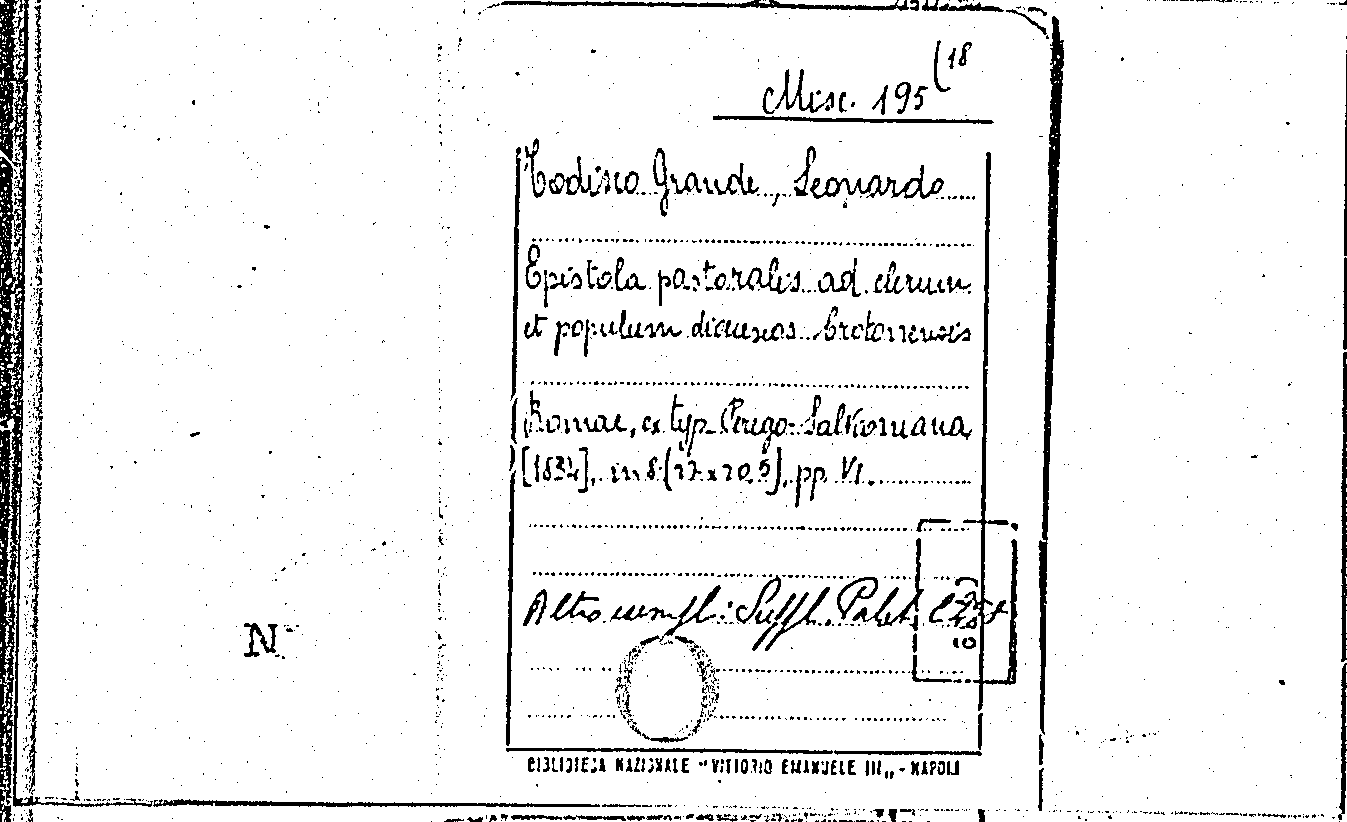 Misc. 195 (18
Todisco Grande, Leonardo
Epistola pastoralis ad clerum
et populum dioceseos Crotonensis
Romae, ex typ. Perego-Salvioniana,
[1834], in 8 (27 x 20,5), pp. VI.
Altro esempl.: Suffl. Palat.
N
BIBLIOTECA NAZIONALE "VITTORIO EMANUELE III„ - NAPOLI